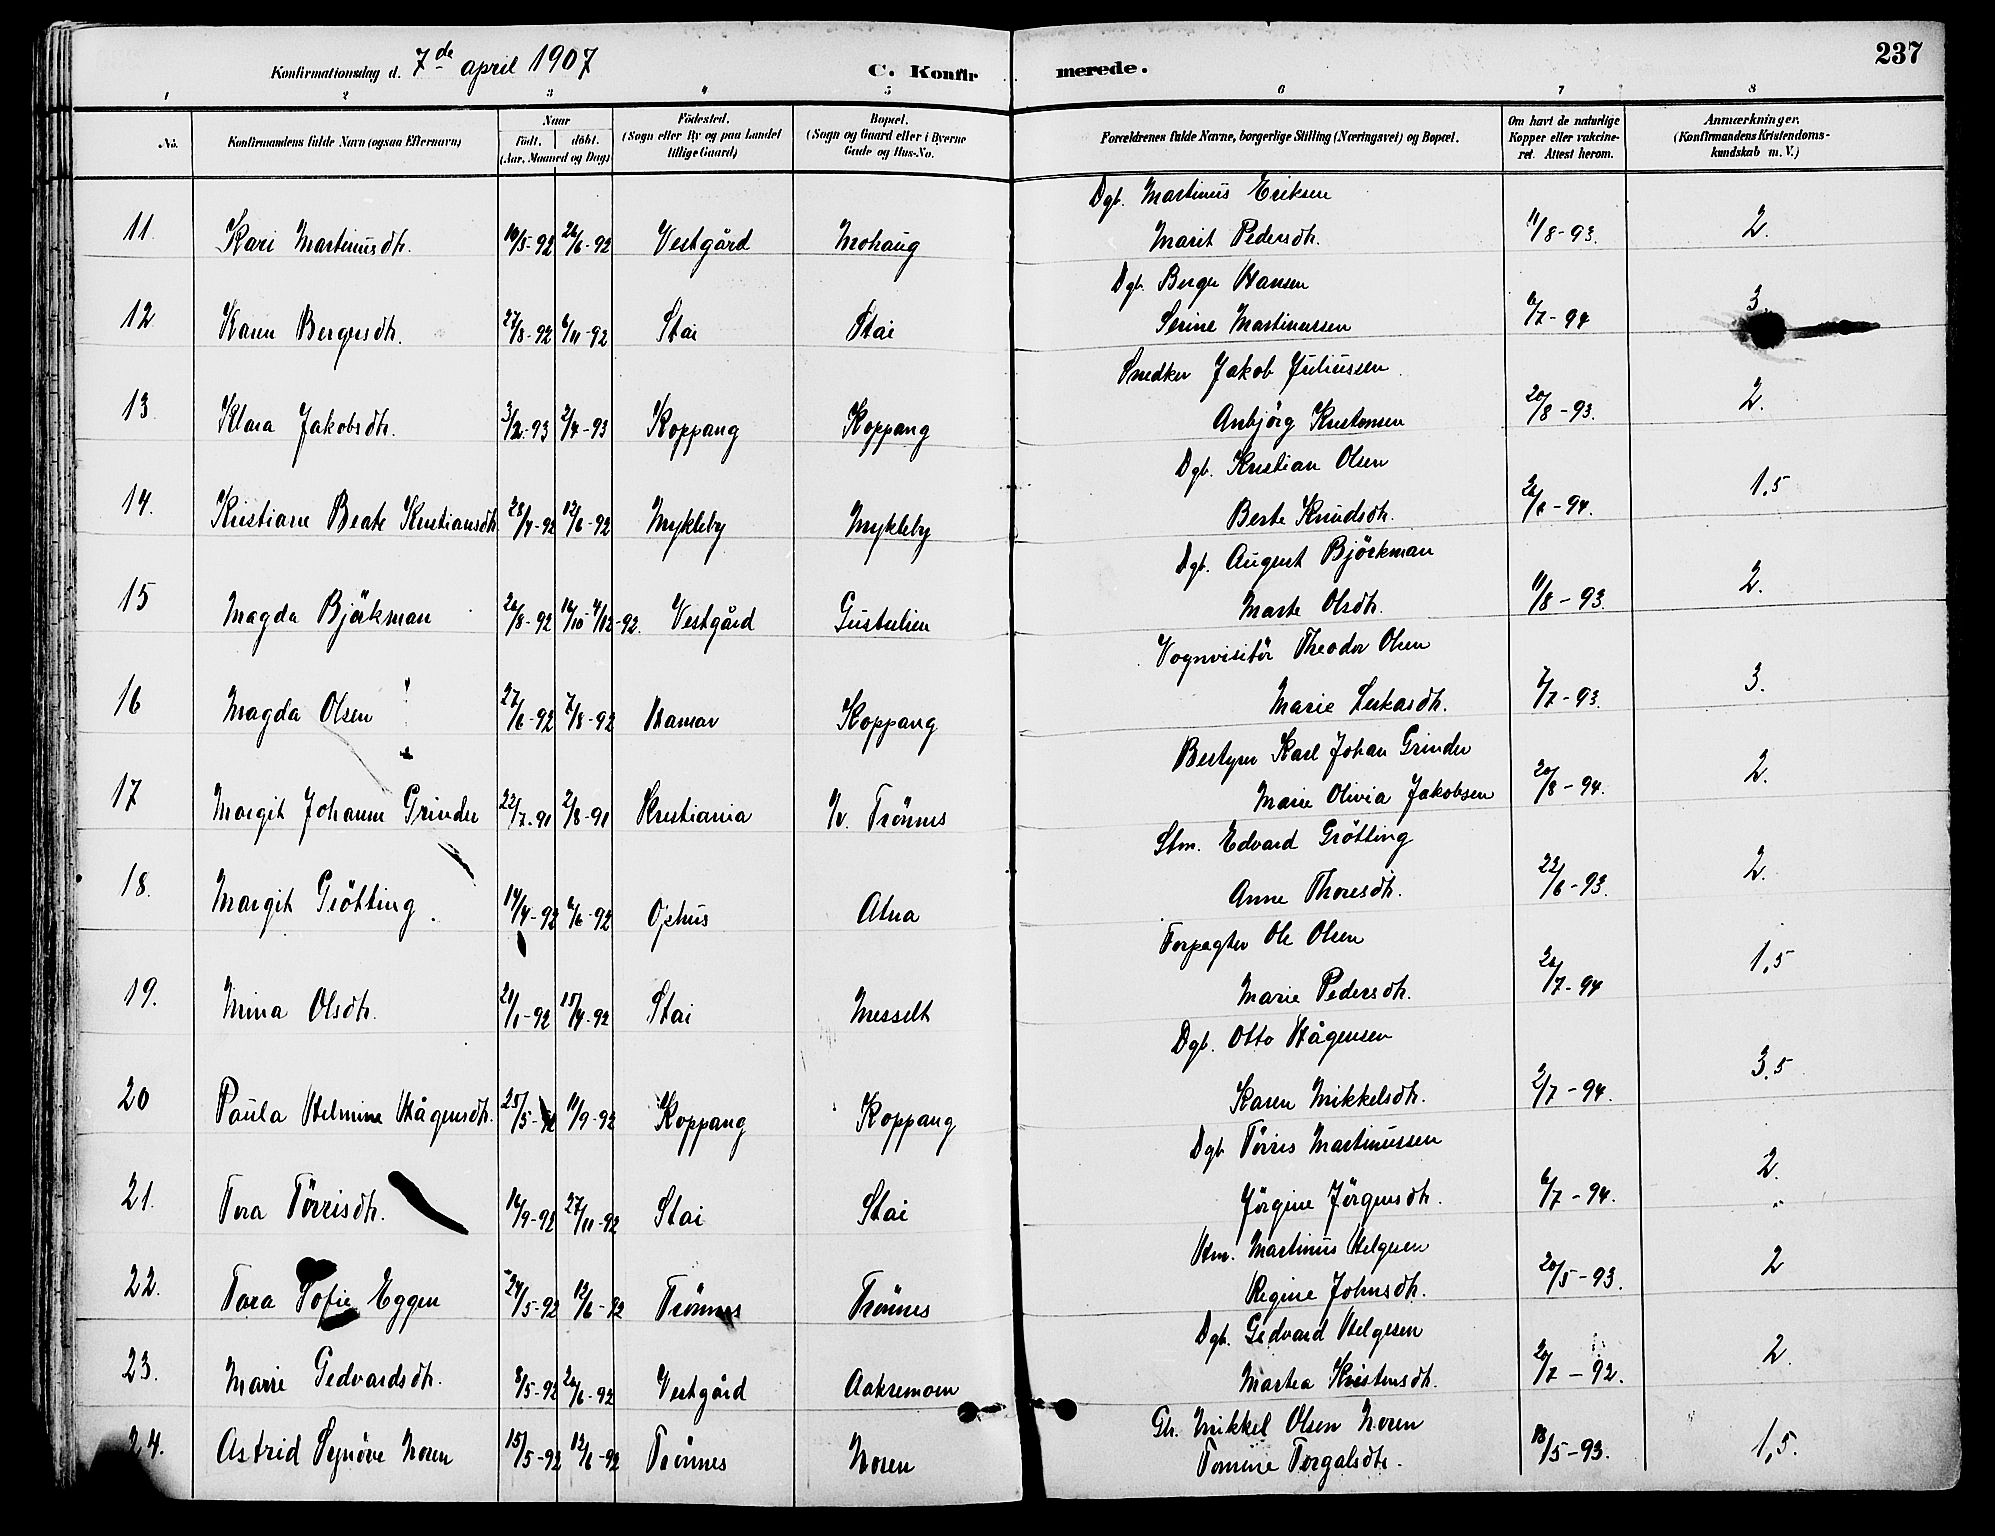 Konfirmationsdag d. 7de april 1907 C. Konfirmerede. 237
1 2 3 4 5 6 7 8
No. Konfirmandens fulde Navn (ogsaa Efternavn) Naar Født. døbt. (Aar, Maaned og Dag) Fødested. (Sogn eller By og paa Landet tillige Gaard) Bopæl. (Sogn og Gaard eller i Byerne Gade og Hus-No. Forældrenes fulde Navne, borgerlige Stilling (Næringsvei) og Bopæl. Om havt de naturlige Kopper eller vaccineret. Attest herom. Anmærkninger. (Konfirmandens Kristendomskundskab m. V.)
Dgb. Martinus Eriksen
11. Kari Martinusdtr. 10/5-92 26/6-92 Vestgård Mohaug Marit Pedersdtr. 11/8-93. 2.
Dgb. Berger Hansen
12 Karen Bergersdtr. 27/8-92 6/11-92 Stai Stai Serine Martinussen 6/7-94 3.
Snedker Jakob Juliussen
13. Klara Jakobsdtr. 3/2-93 2/4-93 Koppang Koppang Anbjörg Kristensen 20/8-93. 2.
Dgb. Kristian Olsen
14. Kristiane Beate Kristiansdtr. 28/4-92 12/6-92 Mykleby Mykleby Berte Knudsdtr. 26/6-94. 1.5
Dgb. August Björkman
15 Magda Björkman 26/8-92 16/10-4/12-92. Vestgård Gustulien Marte Olsdtr. 11/8-93. 2.
Vognvisitör Theodor Olsen
16 Magda Olsen 27/6-92 7/8-92 Hamar Koppang Marie Lukasdtr. 7/7-93. 3.
Bestyrer Karl Johan Grinder
17 Margit Johanne Grinder 22/7-91 2/8-91 Kristiania N. Trönnes Marie Olivia Jakobsen 20/8-94. 2.
Stm. Edvard Grötting
18. Margit Grötting. 14/4-92 6/6-92 Ophus Atna Anne Thoresdtr. 22/6-93. 2.
Forpagter Ole Olsen
19. Mina Olsdtr. 21/1-92 15/4-92 Stai Messelt Marie Pedersdtr. 26/7-94 1,5
Dgb. Otto Hågensen
20 Paula Helmine Hågensdtr. 25/5-92 11/9-92 Koppang Koppang Karen Mikkelsdtr. 2/7-94. 3.5
Dgb Törris Martinussen
21. Tora Törrisdtr. 16/9-92 27/11-92 Stai Stai Jörgine Jörgensdtr. 6/7-94. 2.
Hm. Martinus Helgesen
22. Tora Sofie Eggen 24/5-92 12/6-92 Trönnes Trönnes Regine Johnsdtr. 20/5-93. 2
Dgb. Gedvard Helgesen
23. Marie Gedvardsdtr. 8/5-92 26/6-92 Vestgård Aakremoen Martea Kristensdtr. 20/7-92. 2.
Gb. Mikkel Olsen Noren
24. Astrid Synöve Noren 15/5-92 12/6-92 Trönnes Noren Tomine Torgalsdtr. 18/5-93. 1,5.